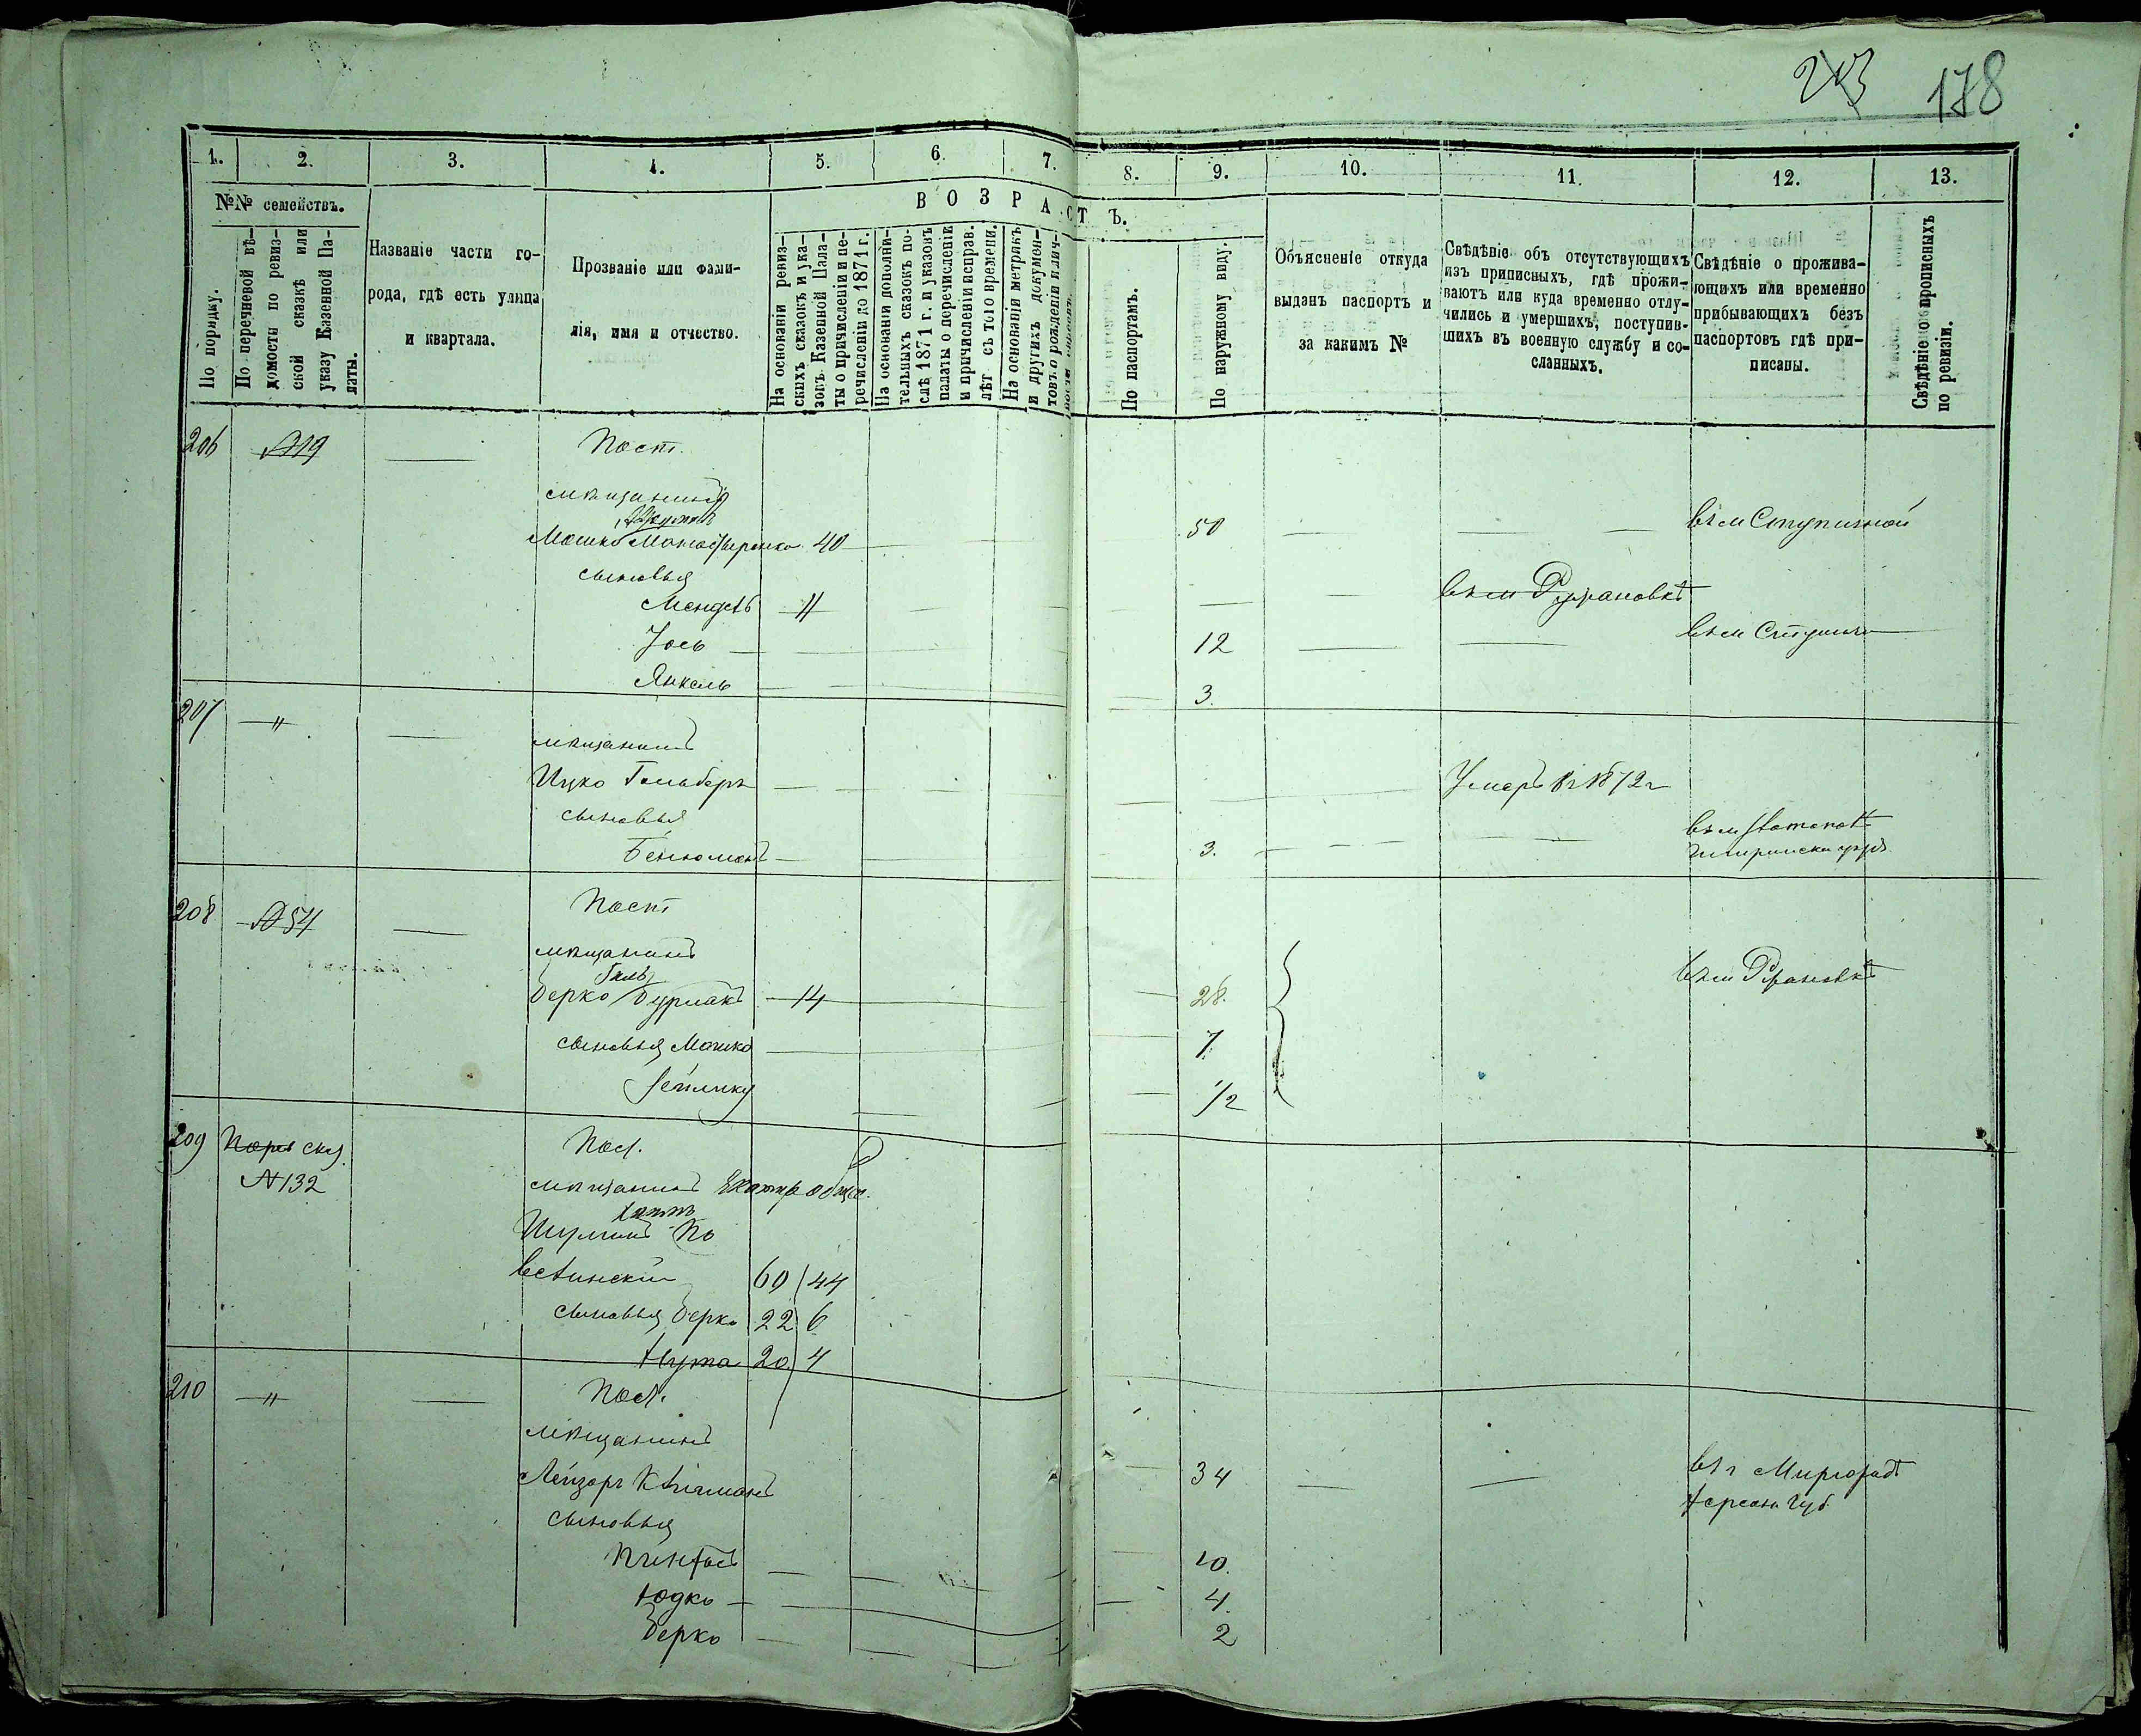 243 178
1. 2. 3. 4. 5. 6. 7. 8. 9. 10. 11. 12. 13.
№№ семействъ.
По порядку.
По перечневой вѣ-
домости по ревиз-
ской сказкѣ или
указу Казенной Па-
латы.
Названіе части го-
рода, гдѣ есть улица
и квартала.
Прозваніе или фами-
лія, имя и отчество.
ВОЗРАСТЪ.
На основаніи ревиз-
скихъ сказокъ и ука-
зовъ Казенной Пала-
ты о причисленіи и пе-
речисленіи до 1871 г.
На основаніи дополни-
тельныхъ сказокъ по-
слѣ 1871 г. и указовъ
палаты о перечисленіи
и причисленіи исправ.
лѣт съ того времени.
На основаніи метрикъ
и другихъ докумен-
товъ о рожденіи и лич-
По паспортамъ.
По наружному виду.
Объясненіе откуда
выданъ паспортъ и
за какимъ №
Свѣдѣніе объ отсутствующихъ
изъ приписныхъ, гдѣ прожи-
ваютъ или куда временно отлу-
чились и умершихъ, поступив-
шихъ въ военную службу и со-
сланныхъ.
Свѣдѣніе о прожива-
ющихъ или временно
прибывающихъ безъ
паспортовъ гдѣ при-
писаны.
Свѣдѣніе о прописныхъ
по ревизіи.
206 №19 Пост.
мѣщанинъ
Мошко 40 50 въ м Ступичной
сыновья
Мендель 11 въ м
Іось 12 въ м
Янкель 3.
207 "
мѣщанинъ
Ицко Гольберъ Умеръ въ 1872 г
сыновья въ м
Беньюминъ 3.
208 №54 Пост
мѣщанинъ
Берко Бурлакъ 14 28. въ м
сыновья Мошко 7.
1/2
209 сказ. Пост.
№132 мѣщанинъ
Шулимъ По
велинскій 60 44
сыновья Берко 22 6
Нута 20 4
210 " Пост.
мѣщанинъ
Лейзоръ Клигманъ 34 въ г
сыновья Херсон. губ
Пинхосъ 10.
Юдко 4.
Берко 2